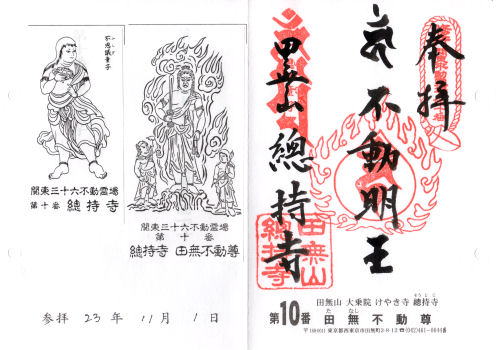 不思議童子
関東三十六不動霊場
第十番 總持寺
関東三十六不動霊場
第十番
總持寺 田無不動尊
参拝 23年 11月 1日
奉拝
不動明王
田無山 總持寺
田無山
總持寺
田無山 大乗院 けやき寺 總持寺
そうじじ
第10番 田無不動尊
た なし
東京都西東京市田無町3-8-12
(042)461-0044番